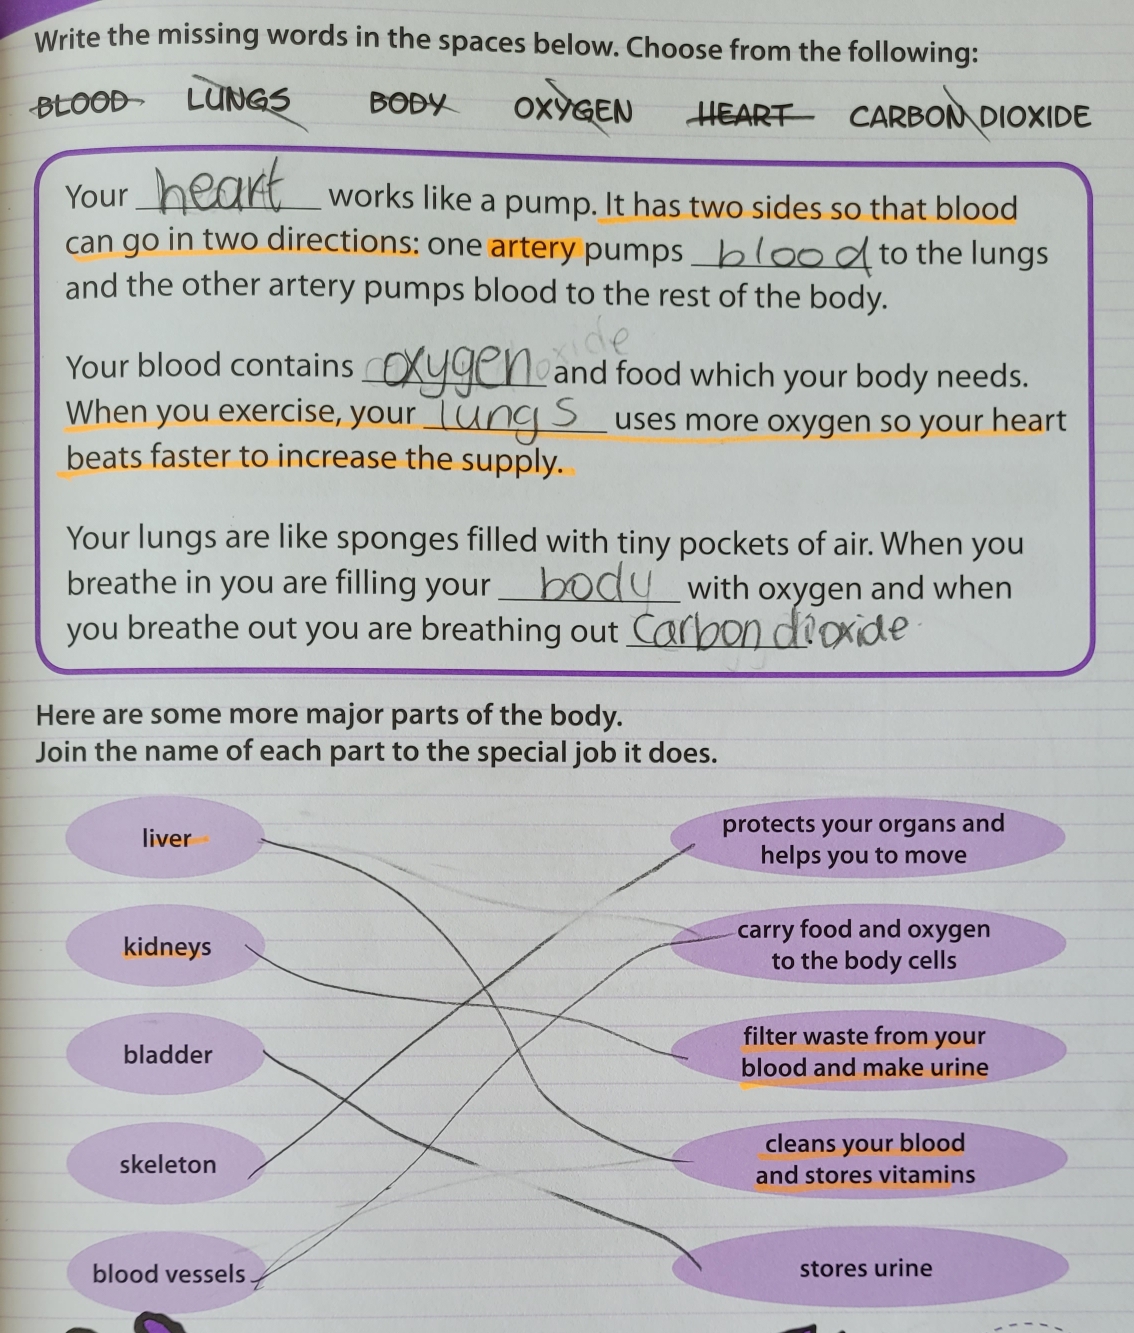 Write the missing words in the spaces below. Choose from the following:
BLOOD LUNGS BODY OXYGEN HEART CARBON DIOXIDE
Your heart works like a pump. It has two sides so that blood
can go in two directions: one artery pumps blood to the lungs
and the other artery pumps blood to the rest of the body.
Your blood contains oxygen and food which your body needs.
When you exercise, your lungs uses more oxygen so your heart
beats faster to increase the supply.
Your lungs are like sponges filled with tiny pockets of air. When you
breathe in you are filling your body with oxygen and when
you breathe out you are breathing out carbon dioxide.
Here are some more major parts of the body.
Join the name of each part to the special job it does.
liver
kidneys
bladder
skeleton
blood vessels
protects your organs and
helps you to move
carry food and oxygen
to the body cells
filter waste from your
blood and make urine
cleans your blood
and stores vitamins
stores urine